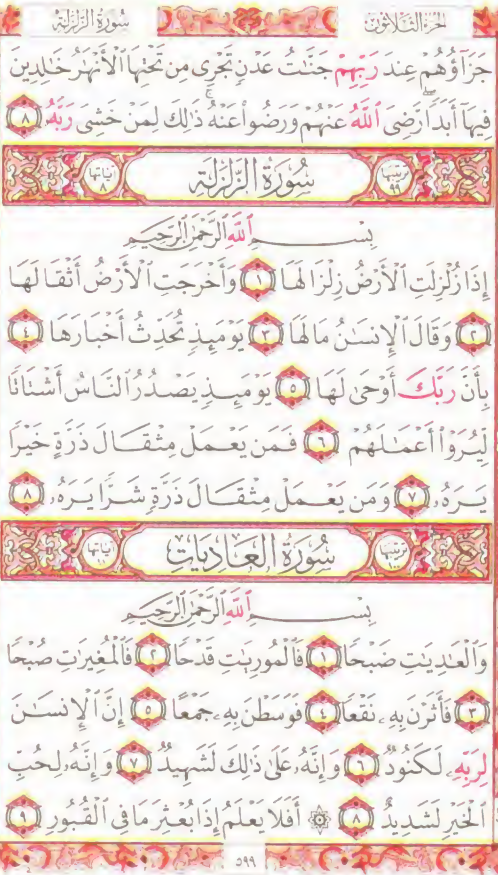 الجزء الثلاثون سورة الزلزلة
جَزَآؤُهُمْ عِندَ رَبِّهِمْ جَنَّٰتُ عَدْنٍ تَجْرِى مِن تَحْتِهَا ٱلْأَنْهَٰرُ خَٰلِدِينَ
فِيهَآ أَبَدًا ۖ رَّضِىَ ٱللَّهُ عَنْهُمْ وَرَضُوا۟ عَنْهُ ۚ ذَٰلِكَ لِمَنْ خَشِىَ رَبَّهُۥ ٨
ترتيبها ٩٩ سُورَةُ الزَّلْزَلَةِ آياتها ٨
بِسْمِ ٱللَّهِ ٱلرَّحْمَٰنِ ٱلرَّحِيمِ
إِذَا زُلْزِلَتِ ٱلْأَرْضُ زِلْزَالَهَا ١ وَأَخْرَجَتِ ٱلْأَرْضُ أَثْقَالَهَا
٢ وَقَالَ ٱلْإِنسَٰنُ مَا لَهَا ٣ يَوْمَئِذٍ تُحَدِّثُ أَخْبَارَهَا ٤
بِأَنَّ رَبَّكَ أَوْحَىٰ لَهَا ٥ يَوْمَئِذٍ يَصْدُرُ ٱلنَّاسُ أَشْتَاتًا
لِّيُرَوْا۟ أَعْمَٰلَهُمْ ٦ فَمَن يَعْمَلْ مِثْقَالَ ذَرَّةٍ خَيْرًا
يَرَهُۥ ٧ وَمَن يَعْمَلْ مِثْقَالَ ذَرَّةٍ شَرًّا يَرَهُۥ ٨
ترتيبها ١٠٠ سُورَةُ العَادِيَاتِ آياتها ١١
بِسْمِ ٱللَّهِ ٱلرَّحْمَٰنِ ٱلرَّحِيمِ
وَٱلْعَٰدِيَٰتِ ضَبْحًا ١ فَٱلْمُورِيَٰتِ قَدْحًا ٢ فَٱلْمُغِيرَٰتِ صُبْحًا
٣ فَأَثَرْنَ بِهِۦ نَقْعًا ٤ فَوَسَطْنَ بِهِۦ جَمْعًا ٥ إِنَّ ٱلْإِنسَٰنَ
لِرَبِّهِۦ لَكَنُودٌ ٦ وَإِنَّهُۥ عَلَىٰ ذَٰلِكَ لَشَهِيدٌ ٧ وَإِنَّهُۥ لِحُبِّ
ٱلْخَيْرِ لَشَدِيدٌ ٨ ۞ أَفَلَا يَعْلَمُ إِذَا بُعْثِرَ مَا فِى ٱلْقُبُورِ ٩
٥٩٩